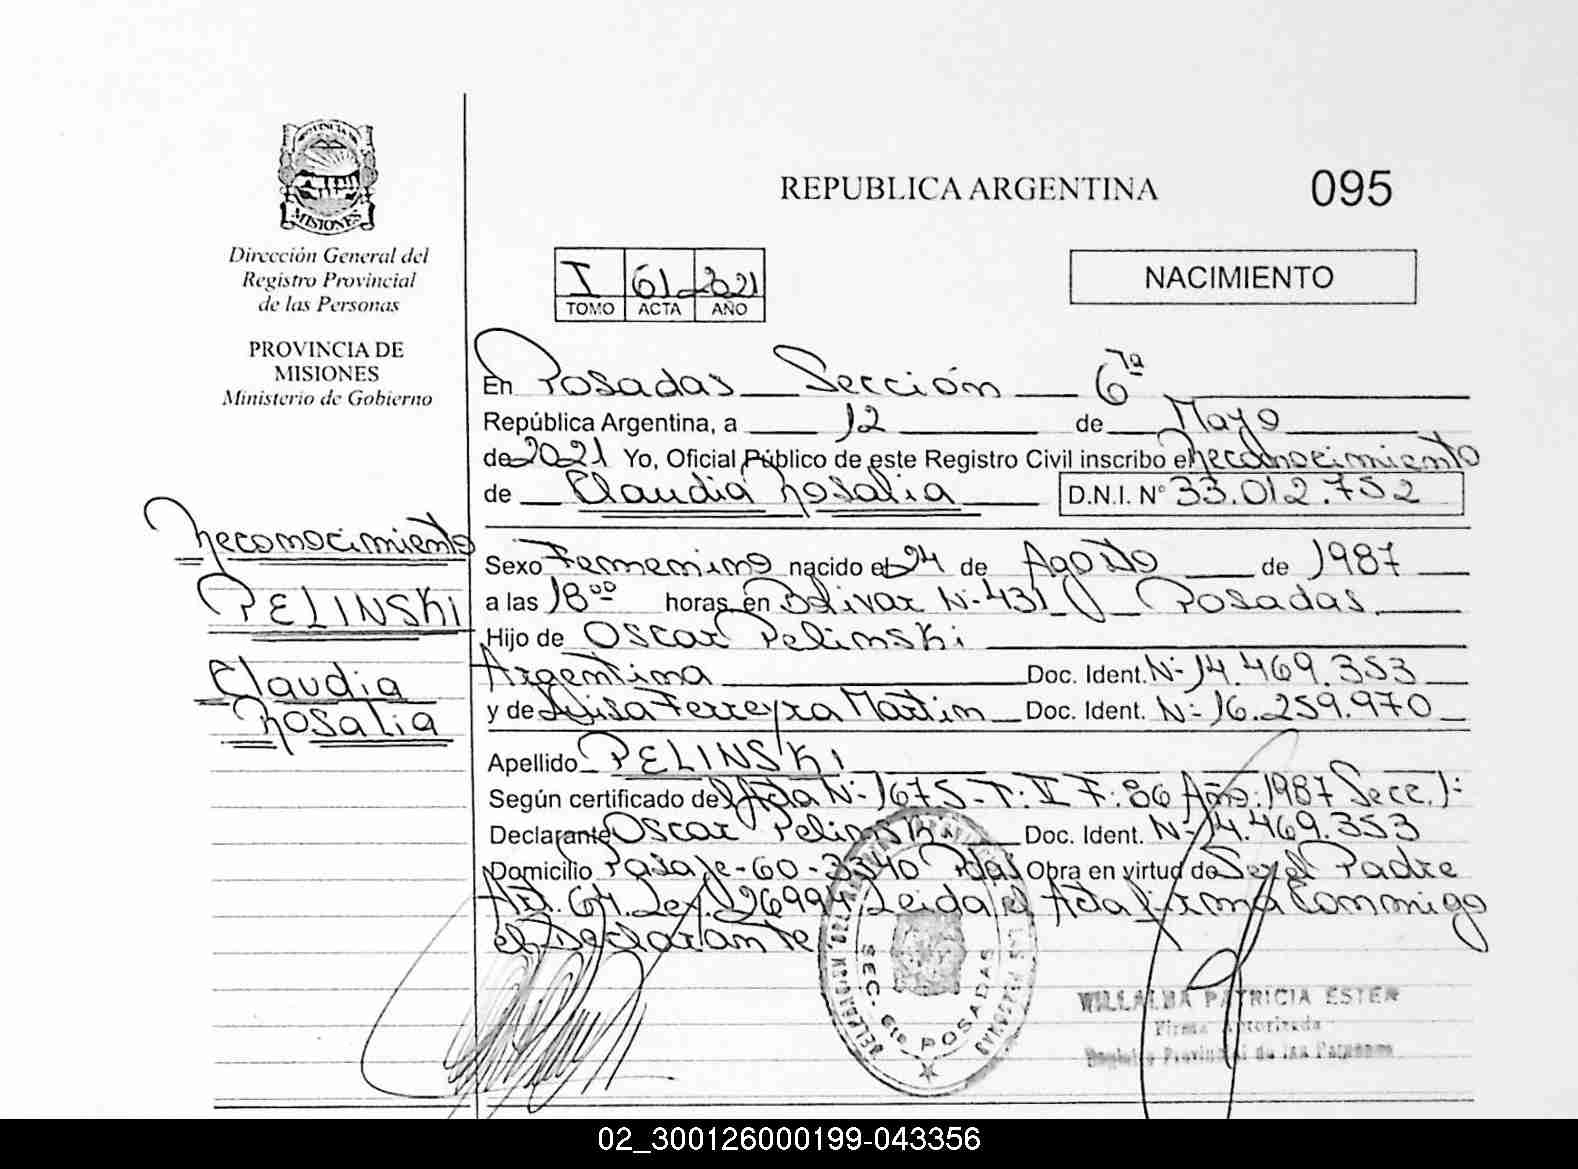 REPUBLICA ARGENTINA
095
PROVINCIA DE
MISIONES
Dirección General del
Registro Provincial
de las Personas
PROVINCIA DE
MISIONES
Ministerio de Gobierno
I 61 2021
TOMO ACTA AÑO
NACIMIENTO
En Posadas Sección 6ta
República Argentina, a 12 de Mayo
de 2021 Yo, Oficial Público de este Registro Civil inscribo el reconocimiento
de Claudia Rosalia D.N.I. N° 33.012.752
Reconocimiento
PELINSKI
Claudia
Rosalia
Sexo Femenino nacido el 24 de Agosto de 1987
a las 18 00 horas, en Bolivar N- 431 Posadas
Hijo de Oscar Pelinski
Argentina Doc. Ident. N- 14.469.353
y de Luisa Ferreyra Martin Doc. Ident. N- 16.259.970
Apellido PELINSKI
Según certificado de Acta N- 1675-T: V F: 86 Año: 1987 Secc. 1:
Declarante Oscar Pelinski Doc. Ident. N- 14.469.353
Domicilio Pasaje-60-3340 Pdas Obra en virtud de Ser el Padre
Art. 64 Ley. 26994 Leida el Acta firma Conmigo
el Declarante
SEC. 6ta POSADAS
VILLALBA PATRICIA ESTER
Firma Autorizada
Registro Provincial de las Personas
02_300126000199-043356